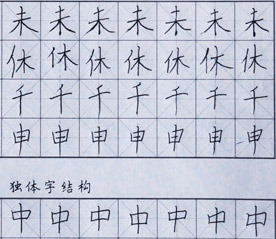 未未未未未未未
休休休休休休休
千千千千千千千
申申申申申申申
独体字结构
中中中中中中中